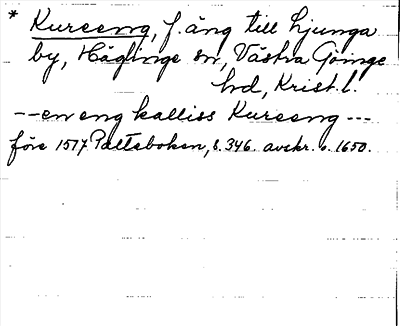 * Kurseng, f. äng till Ljunga
by, Häglinge sn, Västra Göinge
hd, Krist. l.
-- en eng kalliss Kurseng ---
före 1517 Palteboken, s. 346. avskr. o. 1650.